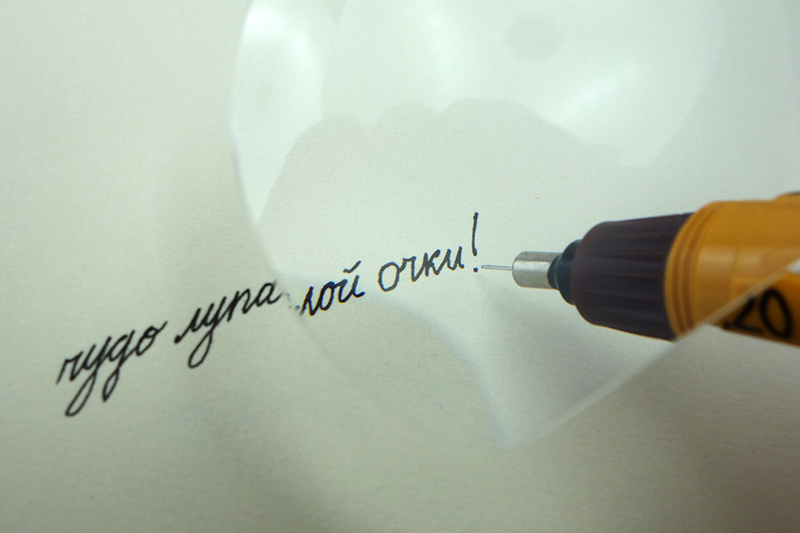 чудо лупа лой очки!
.20